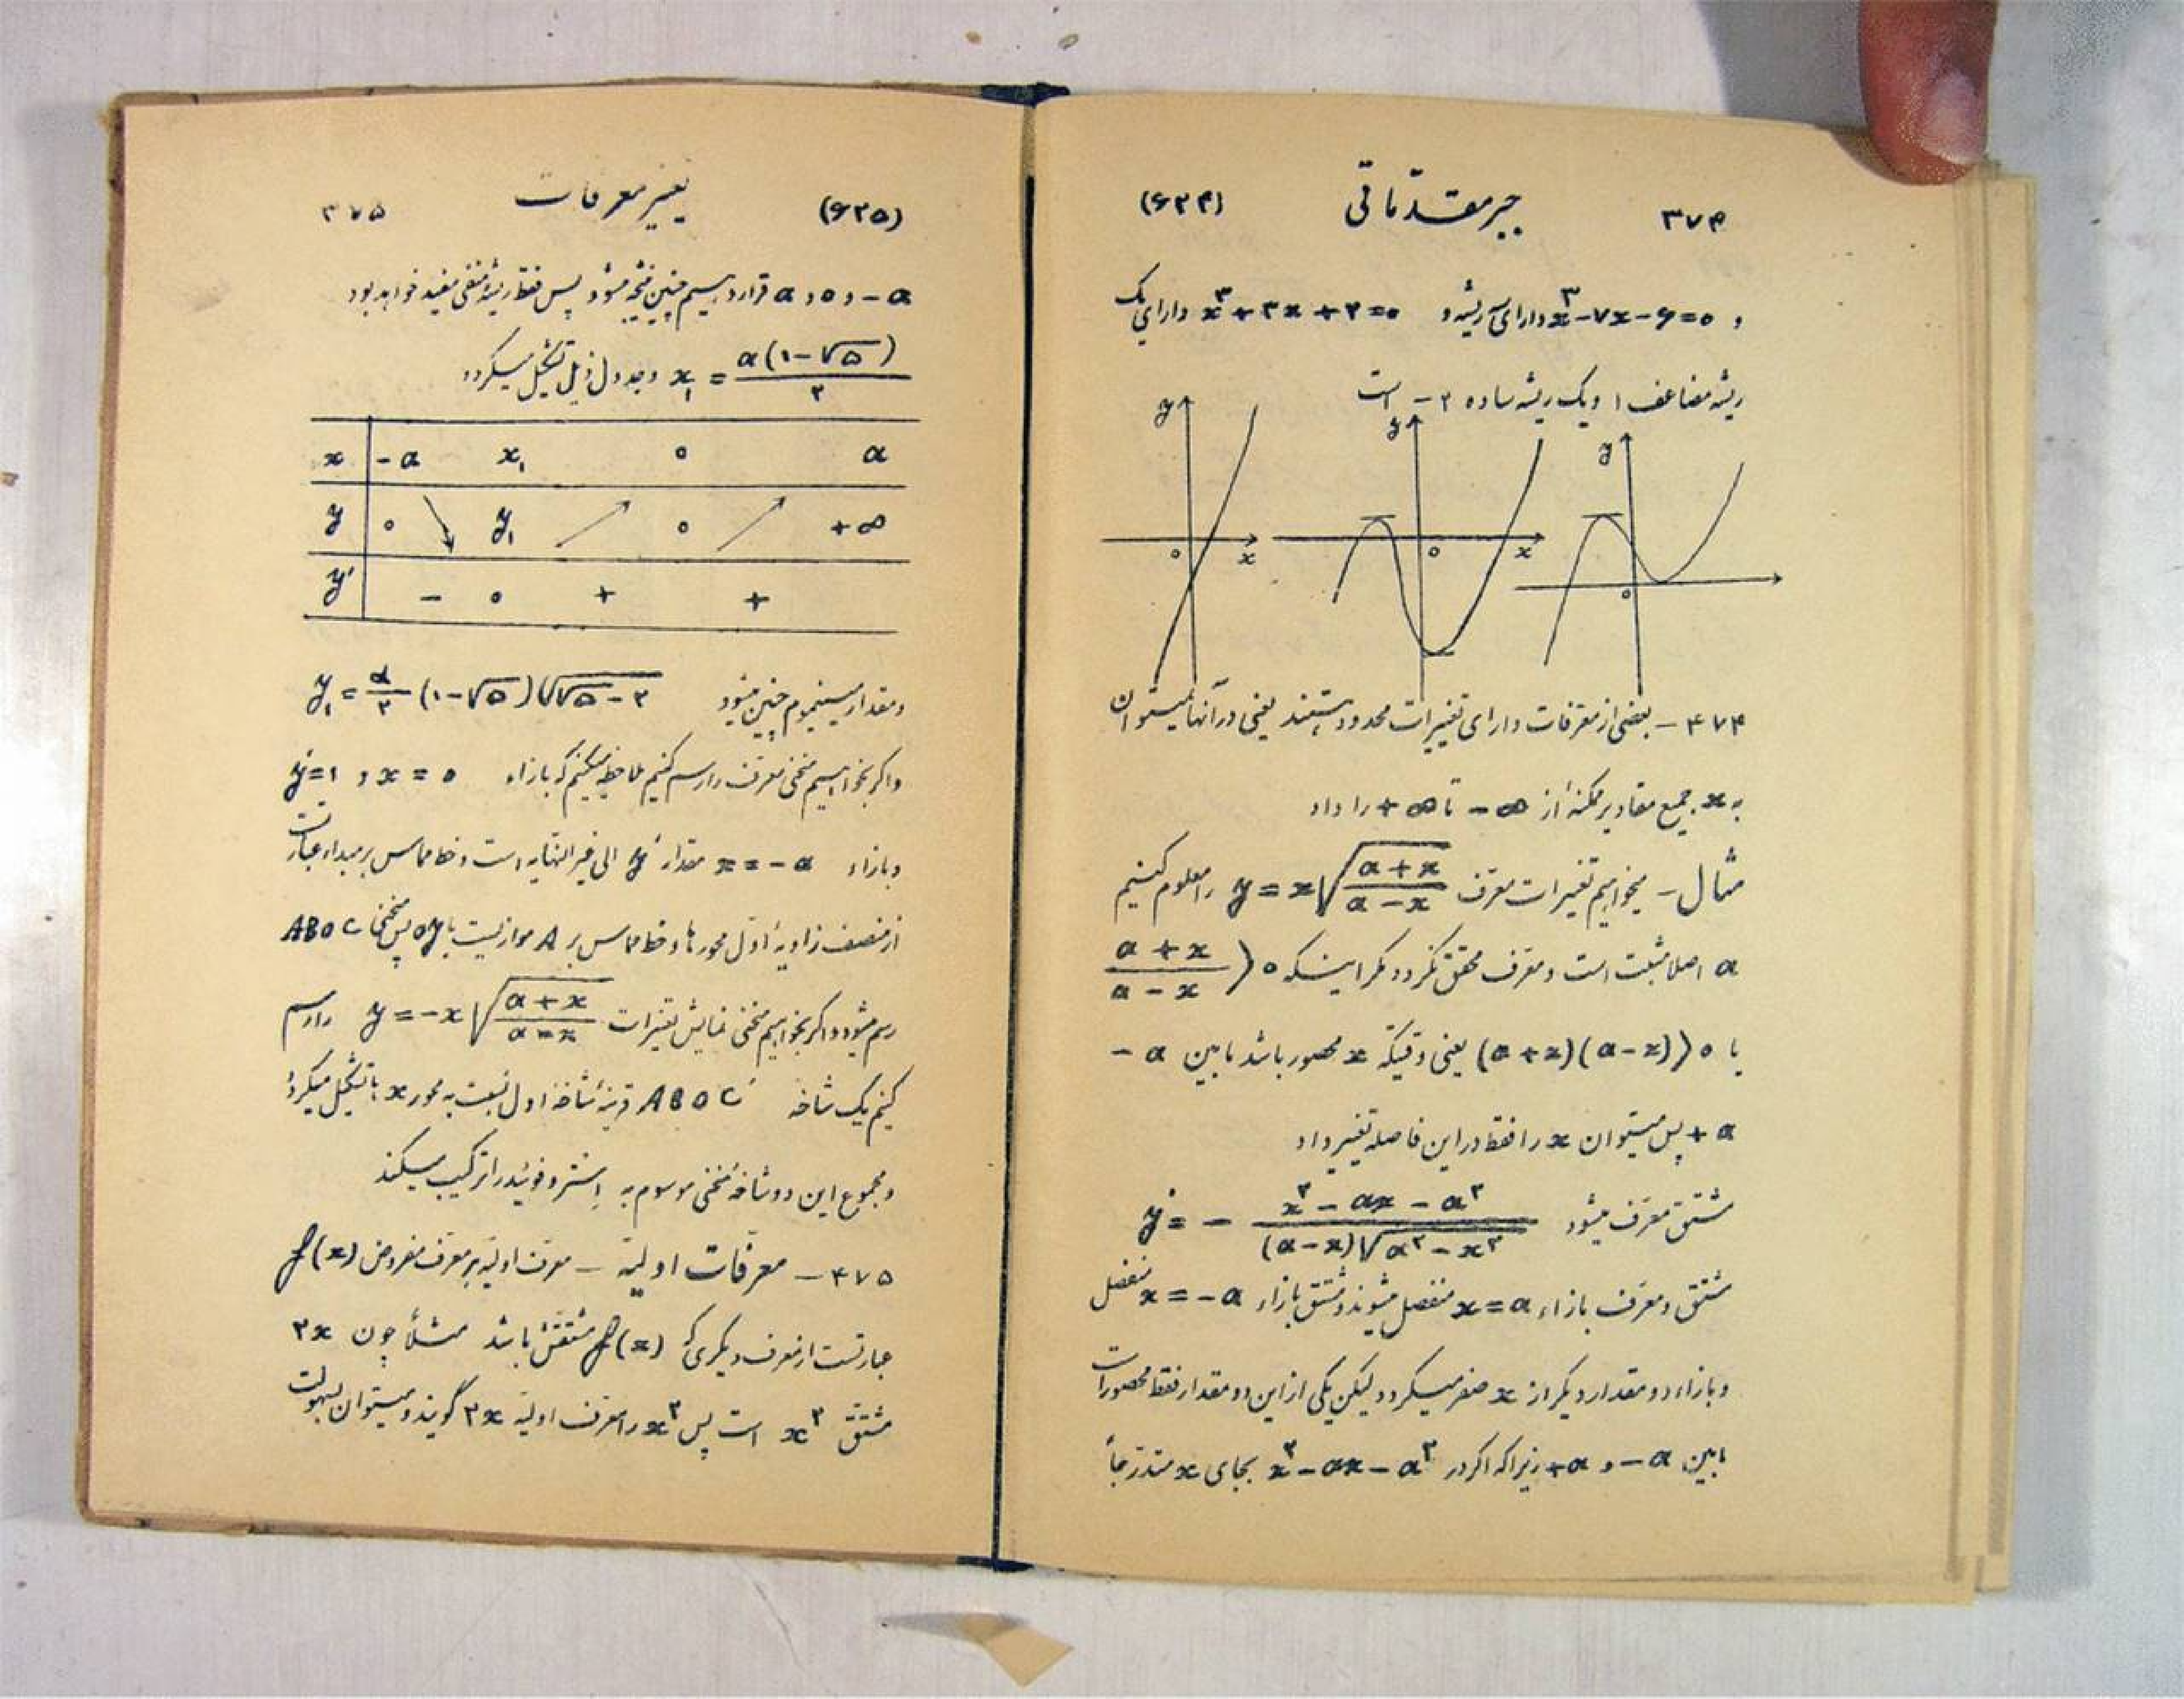 ۳۷۴ جبر مقدّماتی (۶۲۴)
و x³-۷x-۶=۰ دارای سه ریشه و x³+۳x+۲=۰ دارای یک
ریشه مضاعف ۱ و یک ریشه ساده ۲- است
y y y
o x o x o
۴۷۴ – بعضی از معرفات دارای تغییرات محدود هستند یعنی در آنها نمیتوان
به x جمیع مقادیر ممکنه از ∞ - تا ∞ + را داد
مثال – میخواهیم تغییرات معرف y = x√((a+x)/(a-x)) را معلوم کنیم
a اصلا مثبت است و معرف محقق نگردد مگر اینکه (a+x)/(a-x) > ۰
یا (a+x)(a-x) > ۰ یعنی وقتیکه x محصور باشد مابین - a
+ a پس میتوان x را فقط در این فاصله تغییر داد
مشتق معرف میشود y' = - (x² - ax - a²)/((a-x)√(a²-x²))
مشتق و معرف بازاء x = a منفصل میشوند و مشتق بازاء x = -a منفصل
و بازاء دو مقدار دیگر از x صفر میگردد لیکن یکی از این دو مقدار فقط محصور است
مابین -a و +a زیرا که اگر در x² - ax - a² بجای x متدرجاً
(۶۲۵) تغییر معرفات ۳۷۵
-a و ۰ و a قرار دهیم چنین نتیجه میشود پس فقط ریشهٔ منفی مفید خواهد بود
x₁ = a(۱-√۵)/۲ و جدول ذیل تشکیل میگردد
x -a x₁ ۰ a
y ۰ ↘ y₁ ↗ ۰ ↗ +∞
y' - ۰ + +
و مقدار مینیموم چنین میشود y₁ = a/۲ (۱-√۵)√(√۵-۲)
و اگر بخواهیم منحنی معرف را رسم کنیم ملاحظه میکنیم که بازاء x = ۰ , y' = ۱
و بازاء x = -a مقدار y' الی غیر النهایه است و خط مماس بر مبداء عبارتست
از منصف زاویهٔ اول محورها و خط مماس بر A موازیست با oy پس منحنی ABOC
رسم میشود و اگر بخواهیم منحنی نمایش تغییرات y = -x√((a+x)/(a-x)) را رسم
کنیم یک شاخه ABOC' قرینهٔ شاخهٔ اول نسبت به محور x ها تشکیل میگردد
و مجموع این دو شاخهٔ منحنی موسوم به اِسترو فوئید را ترکیب میکند
۴۷۵ – معرفات اولیّه – معرف اولیّه بر معرف مفروض f(x)
عبارتست از معرف دیگری که f(x) مشتقش باشد مثلاً چون ۲x
مشتق x² است پس x² را معرف اولیّه ۲x گویند و میتوان بسهولت